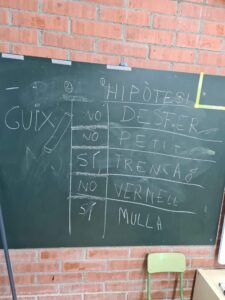 ② ① HIPÒTESI
GUIX NO DESFER
NO PETIT
SÍ TRENCA
NO VERMELL
SÍ MULLA